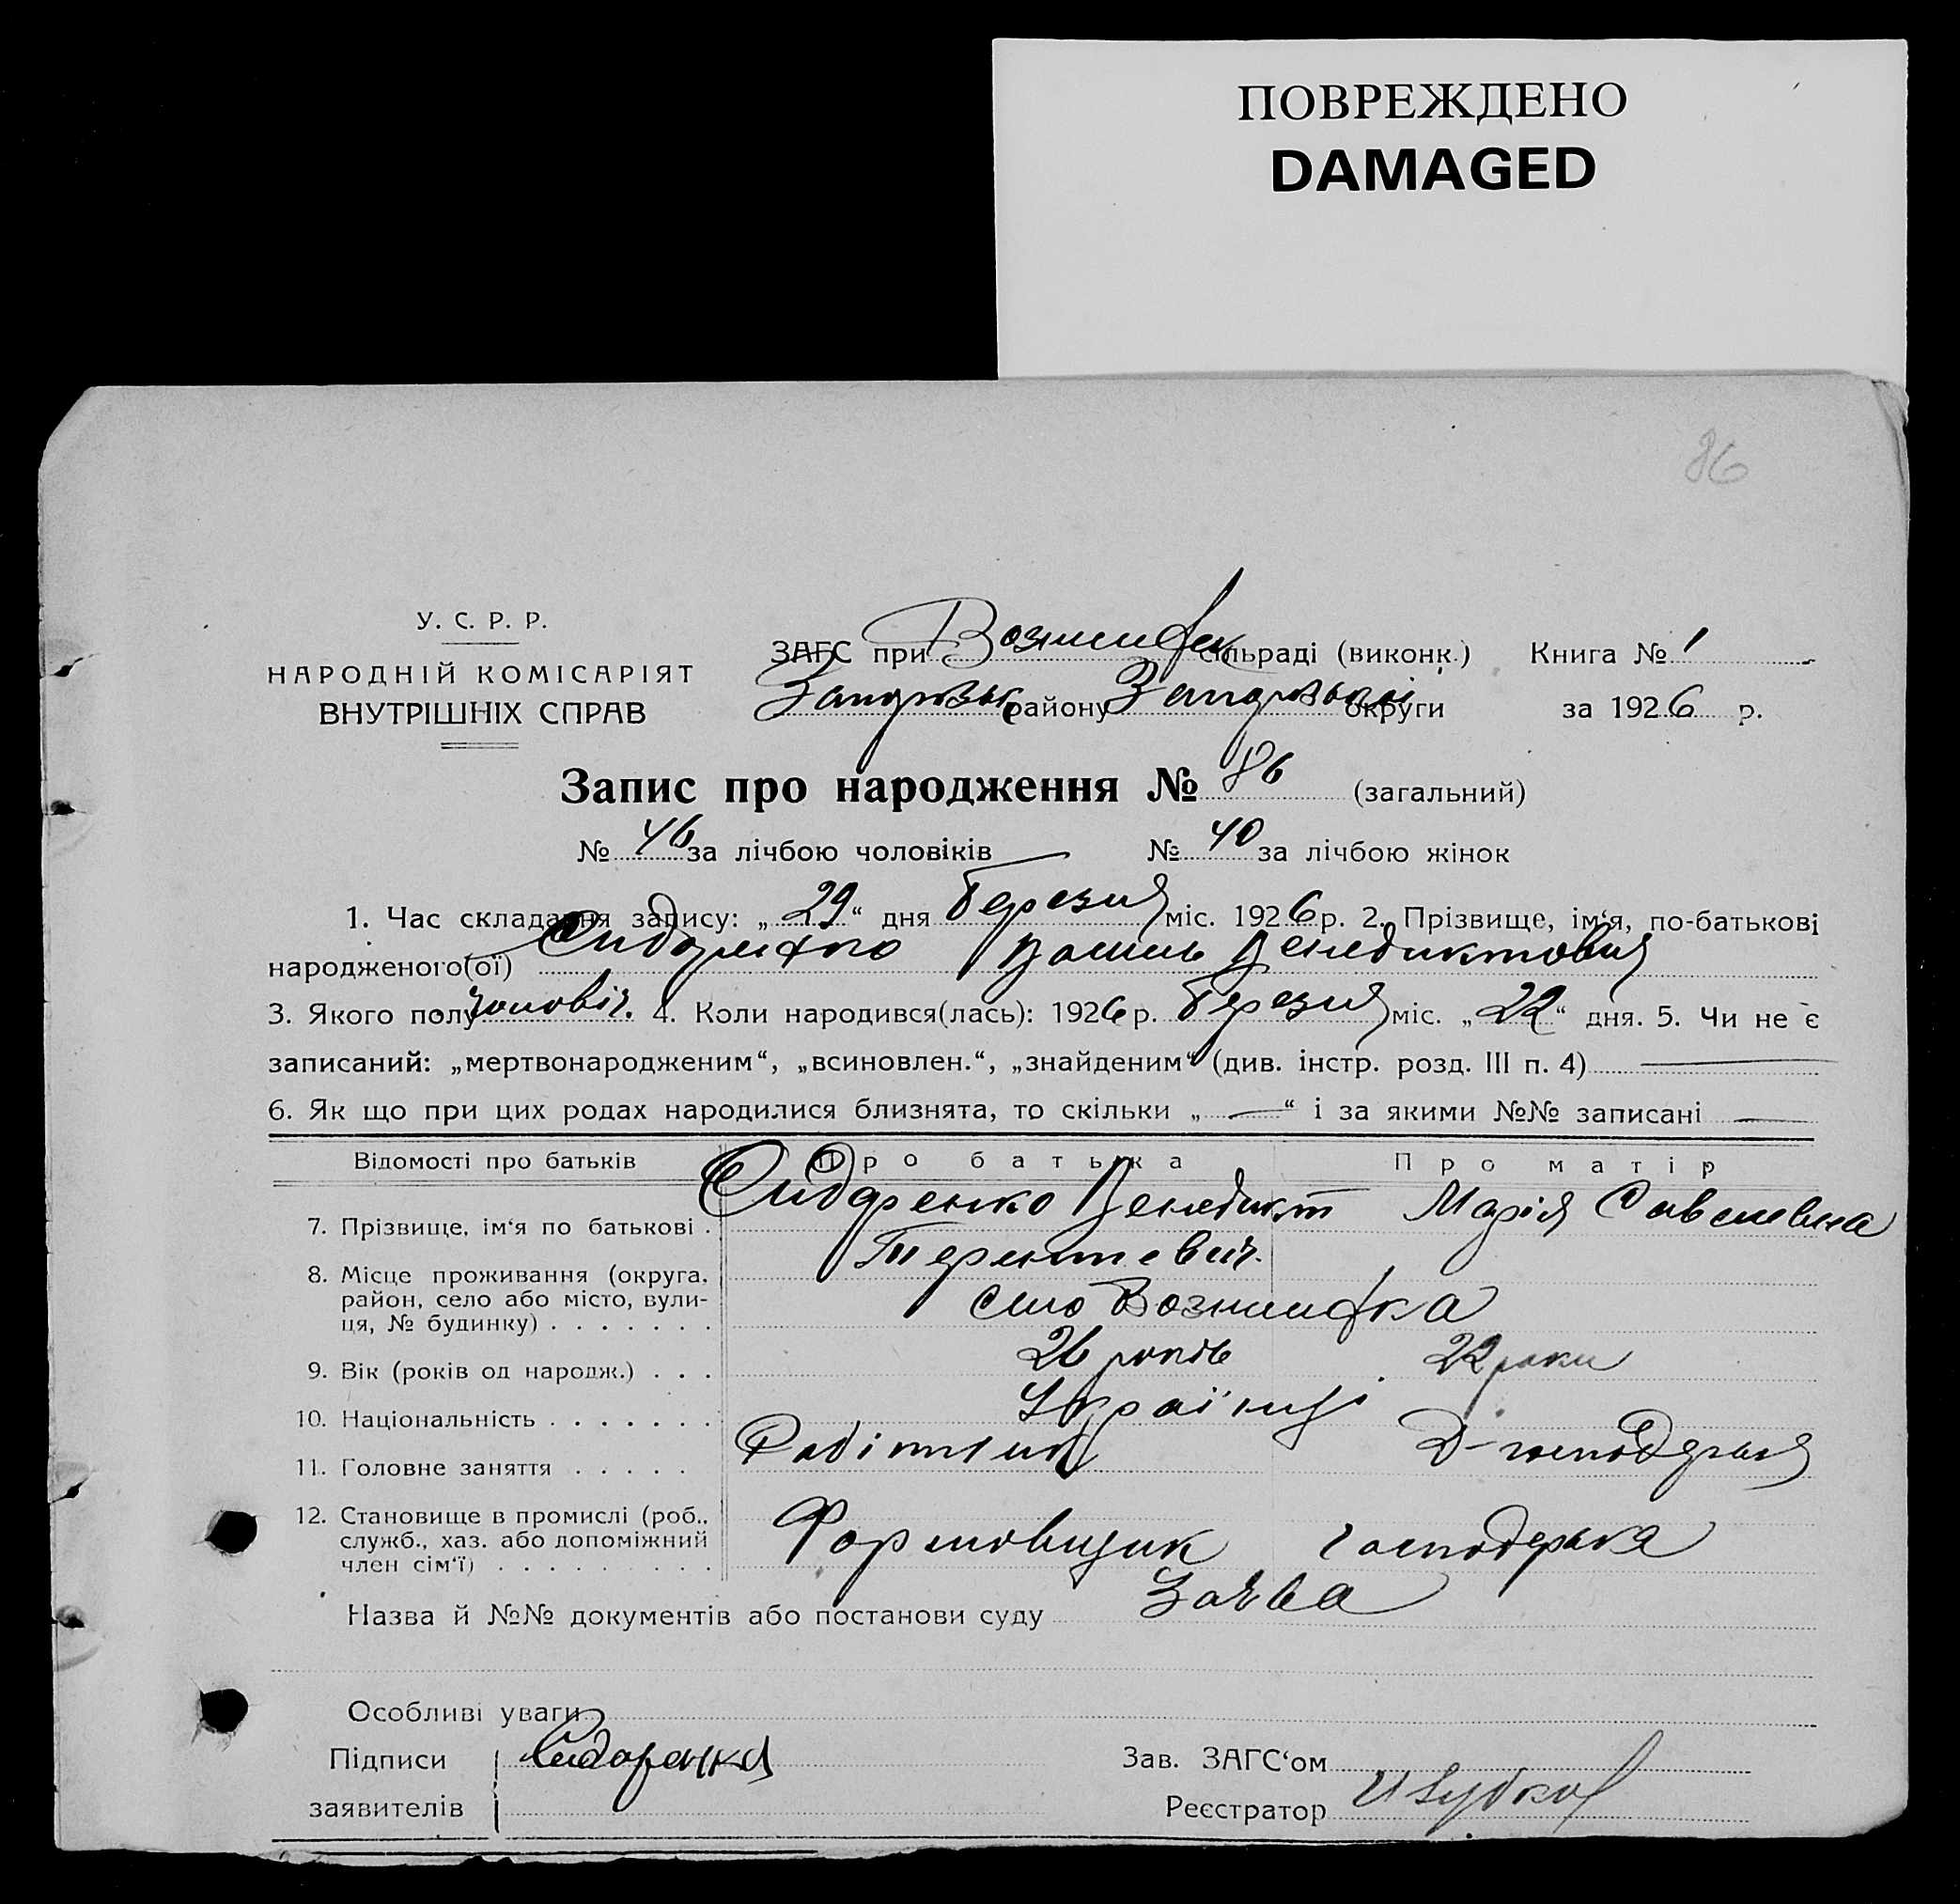 ПОВРЕЖДЕНО
DAMAGED
86
У. С. Р. Р.
НАРОДНІЙ КОМІСАРІЯТ
ВНУТРІШНІХ СПРАВ
ЗАГС при сільраді (виконк.) Книга № 1
району округи за 1926 р.
Запис про народження № 86 (загальний)
№ 46 за лічбою чоловіків № 40 за лічбою жінок
1. Час складання запису: „29“ дня Березня міс. 1926 р. 2. Прізвище, ім‘я, по-батькові
народженого(ої) Сидоренко Василь Венедиктович
3. Якого полу чоловіч. 4. Коли народився(лась): 1926 р. Березня міс. „22“ дня. 5. Чи не є
записаний: „мертвонародженим“, „всиновлен.“, „знайденим“ (див. інстр. розд. III п. 4) —
6. Як що при цих родах народилися близнята, то скільки „—“ і за якими №№ записані —
Відомості про батьків Про батька Про матір
7. Прізвище, ім‘я по батькові . Сидоренко Венедикт Марія Савелевна
Терентевич.
8. Місце проживання (округа, район, село або місто, вулиця, № будинку) . . . . . . . село Вознесенка
9. Вік (років од народж.) . . . 26 років 22 роки
10. Національність . . . . . . . Українці
11. Головне заняття . . . . . Робітник Д-господарня
12. Становище в промислі (роб., служб., хаз. або допоміжний член сім‘ї) . . . . . . . . . Формовщик господарька
Назва й №№ документів або постанови суду Заява
Особливі уваги
Підписи Сидоренко Зав. ЗАГС‘ом
заявителів Реєстратор